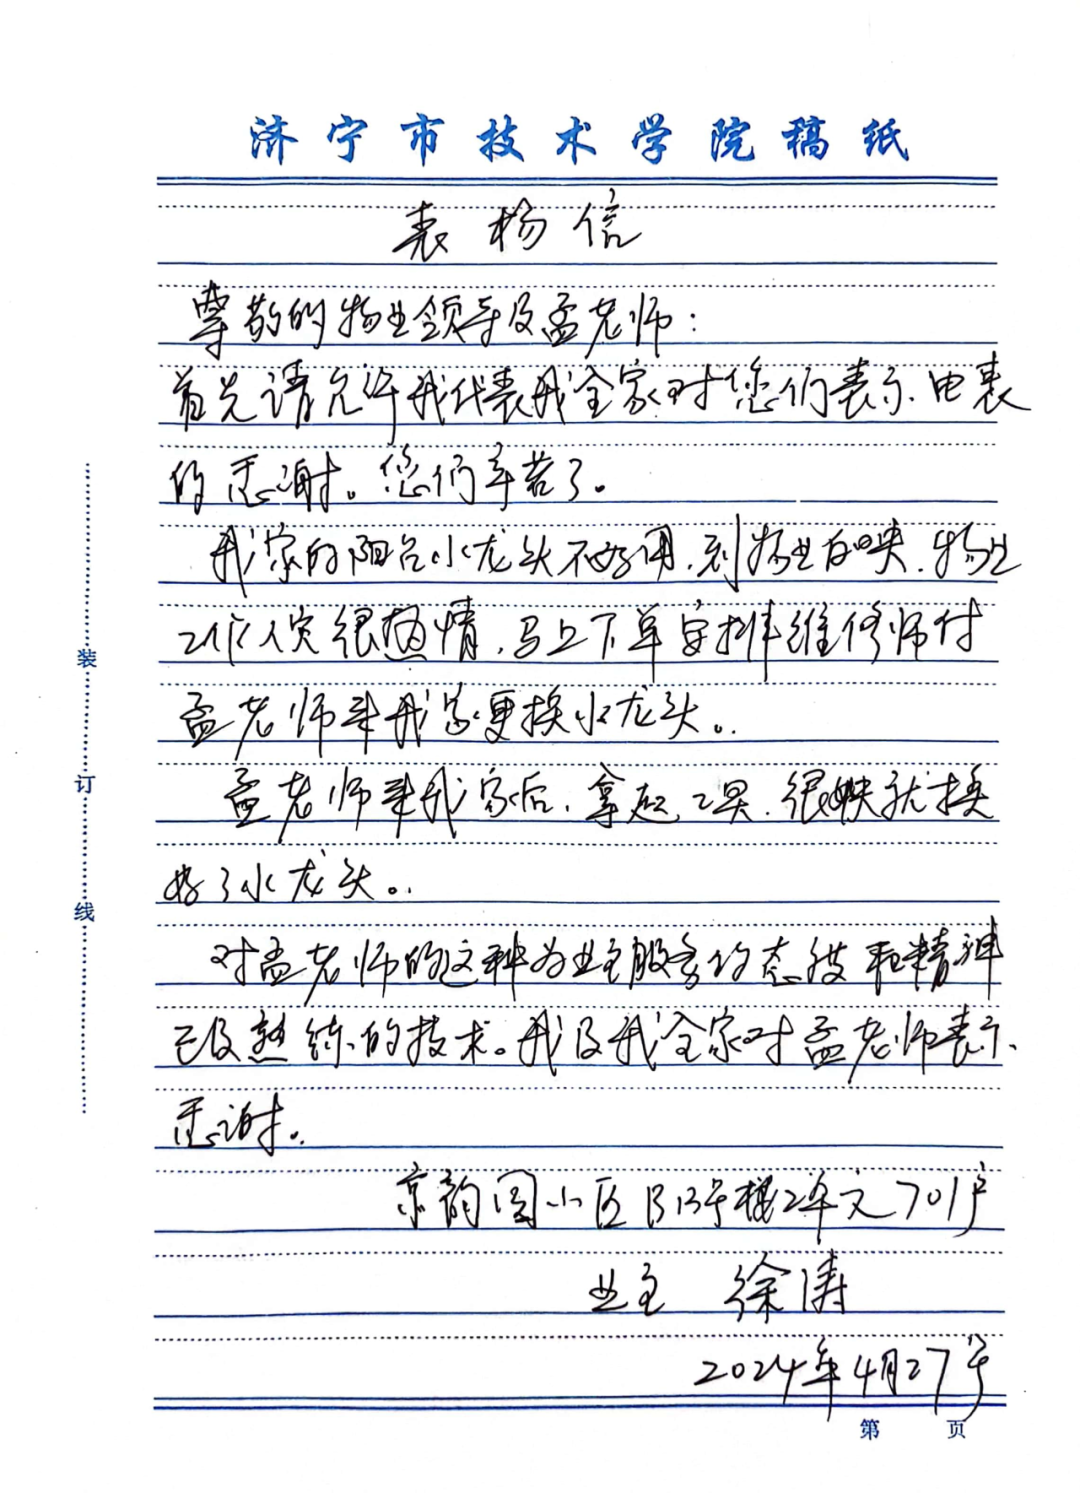 济宁市技术学院稿纸
表扬信
尊敬的物业领导及孟老师：
首先请允许我代表我全家对您们表示由衷
的感谢。您们辛苦了。
我家的阳台水龙头不好用，到物业反映，物业
工作人员很热情，马上下单安排维修师付
孟老师来我家更换水龙头。
孟老师来我家后，拿起工具，很快就换
好了水龙头。
对孟老师的这种为业主服务的态度和精神
已及熟练的技术。我及我全家对孟老师表示
感谢。
京韵园小区B13号楼2单元701户
业主 徐涛
2024年4月27号
第 页
装
订
线